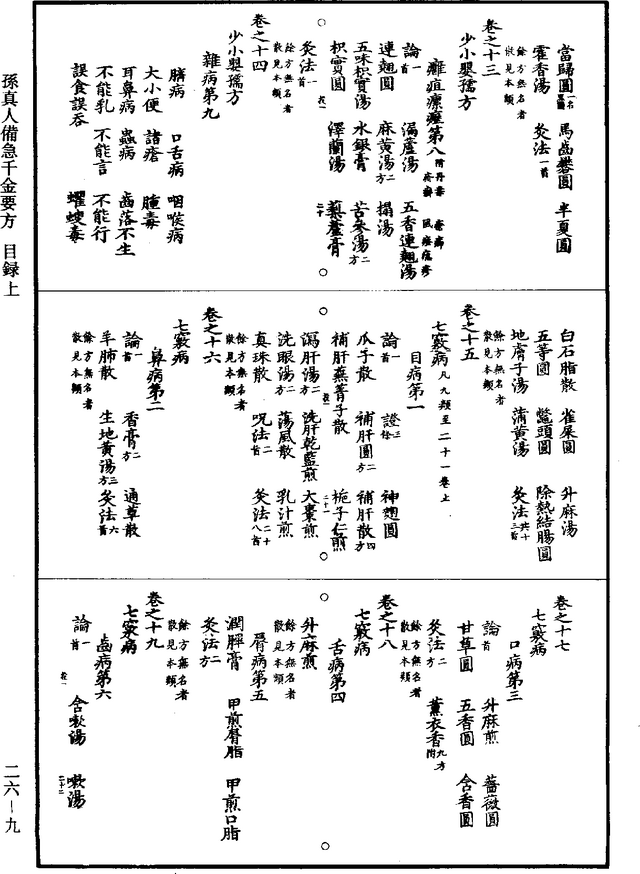 當歸圓一名黑圓 馬齒礬圓 半夏圓
藿香湯 灸法一首
餘方無名者散見本類
卷之十三
少小嬰孺方
癰疽瘰癧第八附丹毒 瘡癬
論一首 漏蘆湯 五香連翹湯
連翹圓 麻黃湯二方 搨湯
五味枳實湯 水銀膏 苦參湯二方
枳實圓 澤蘭湯 藜蘆膏
灸法一首
餘方無名者散見本類
卷之十四
少小嬰孺方
雜病第九
臍病 口舌病 咽喉病
大小便 諸瘡 腫毒
耳鼻病 蟲病 齒落不生
不能乳 不能言 不能行
誤食誤吞 蠼螋毒
白石脂散 雀屎圓 升麻湯
五等圓 鱉頭圓 除熱結腸圓
地膚子湯 蒲黃湯 灸法共十三首
餘方無名者散見本類
卷之十五
七竅病凡九類至二十一卷上
目病第一
論一首 證三條 神麴圓
瓜子散 補肝圓二方 補肝散四方
補肝蕪菁子散 梔子仁煎
瀉肝湯二方 洗肝乾藍煎 大棗煎
洗眼湯二方 蕩風散 乳汁煎
真珠散 呪法二首 灸法二十八首
餘方無名者散見本類
卷之十六
七竅病
鼻病第二
論一首 香膏二方 通草散
羊肺散 生地黃湯二方 灸法六首
餘方無名者散見本類
卷之十七
七竅病
口病第三
論一首 升麻煎 薔薇圓
甘草圓 五香圓 含香圓
灸法二方 薰衣香九方附
餘方無名者散見本類
卷之十八
七竅病
舌病第四
升麻煎
餘方無名者散見本類
脣病第五
潤脾膏 甲煎脣脂 甲煎口脂
灸法二方
餘方無名者散見本類
卷之十九
七竅病
齒病第六
論一首 含漱湯 嗽湯
孫真人備急千金要方 目録上
二六－九